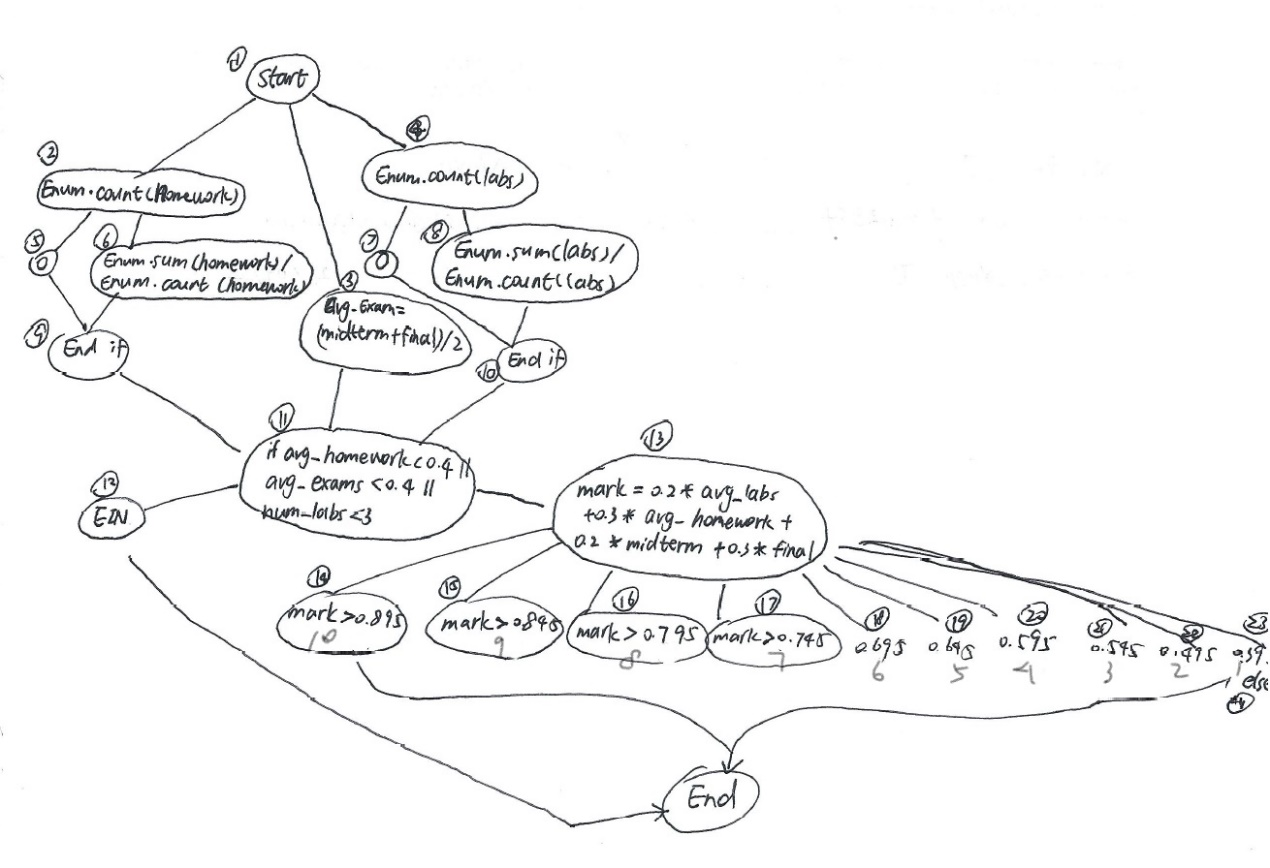 1
Start
4
2
Enum.count(labs)
Enum.count(Homework)
5
6
7
8
0
Enum.sum(homework)/
Enum.count(homework)
0
Enum.sum(labs)/
Enum.count(labs)
3
avg_Exam=
(midterm+final)/2
9
End if
10
End if
11
if avg_homework<0.4 ||
avg_exams <0.4 ||
num_labs <3
12
EIN
13
mark = 0.2 * avg_labs
+0.3 * avg_homework +
0.2 * midterm +0.3 * final
14
mark>0.895
10
15
mark>0.845
9
16
mark>0.795
8
17
mark>0.745
7
18
0.695
6
19
0.645
5
0.595
4
0.545
3
0.495
2
23
0.39
1
else
End